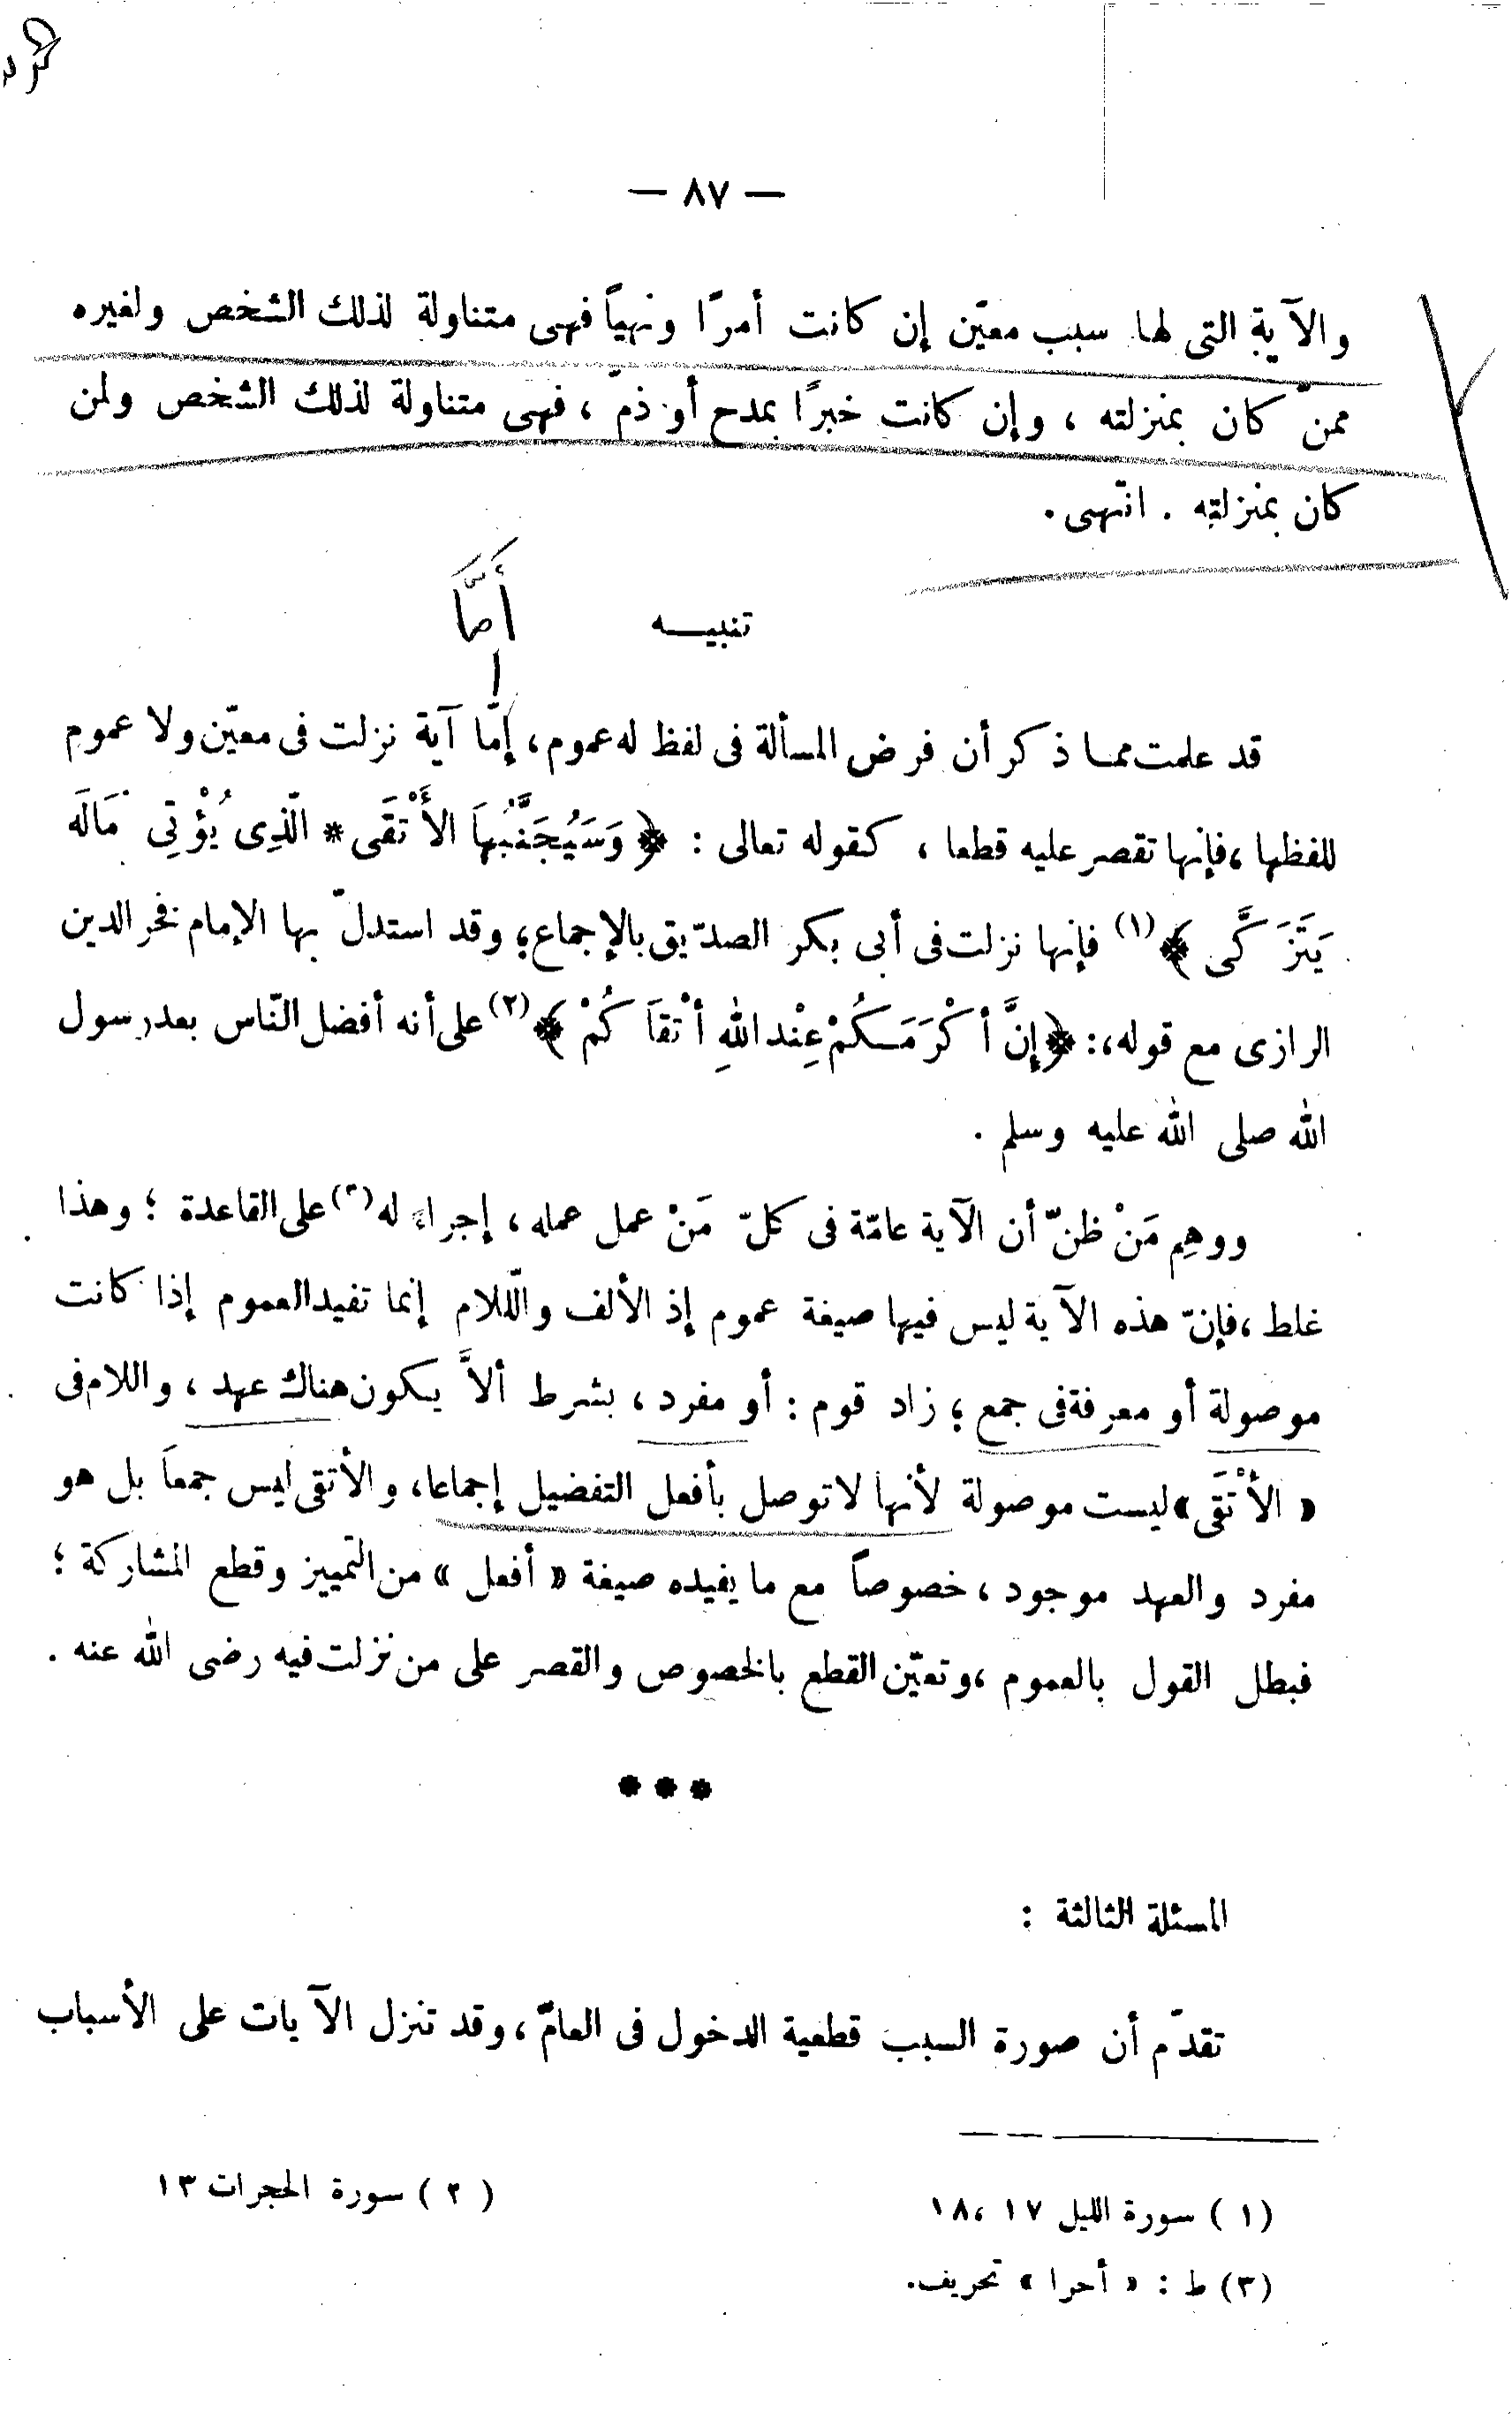 — ٨٧ —
والآية التى لها سبب معيّن إن كانت أمرًا ونهيًا فهى متناولة لذلك الشخص ولغيره
ممنّ كان بمنزلته ، وإن كانت خبرًا بمدح أو ذمّ ، فهى متناولة لذلك الشخص ولمن
كان بمنزلته . انتهى .
تنبيـــه
أَمَّا
قد علمت مما ذكر أن فرض المسألة فى لفظ له عموم، إمّا آية نزلت فى معيّن ولا عموم
للفظها ، فإنها تقصر عليه قطعا ، كقوله تعالى : ﴿ وَسَيُجَنَّبُهَا الأَتْقَى * الَّذِى يُؤْتِى مَالَه
يَتَزَكَّى ﴾ (١) فإنها نزلت فى أبى بكر الصدّيق بالإجماع؛ وقد استدلّ بها الإمام فخر الدين
الرازى مع قوله،: ﴿ إِنَّ أكْرَمَكُمْ عِنْد اللهِ أتْقاَكُمْ ﴾ (٢) على أنه أفضل النّاس بعد رسول
الله صلى الله عليه وسلم .
ووهِم مَنْ ظنّ أن الآية عامّة فى كلّ مَنْ عمل عمله ، إجراء له (٣) على القاعدة ؛ وهذا
غلط ، فإنّ هذه الآية ليس فيها صيغة عموم إذ الألف واللّلام إنما تفيد العموم إذا كانت
موصولة أو معرفة فى جمع ؛ زاد قوم : أو مفرد ، بشرط ألاَّ يكون هناك عهد ، واللام فى
« الأتْقَى » ليست موصولة لأنها لا توصل بأفعل التفضيل إجماعا ، والأتقى ليس جمعاً بل هو
مفرد والعهد موجود ، خصوصاً مع ما يفيده صيغة « أفعل » من التمييز وقطع المشاركة ؛
فبطل القول بالعموم ، وتعيّن القطع بالخصوص والقصر على من نزلت فيه رضى الله عنه .
***
المسئلة الثالثة :
تقدّم أن صورة السبب قطعية الدخول فى العامّ ، وقد تنزل الآيات على الأسباب
(١) سورة الليل ١٧ ،١٨
(٢) سورة الحجرات ١٣
(٣) ط : « أحرا » تحريف.